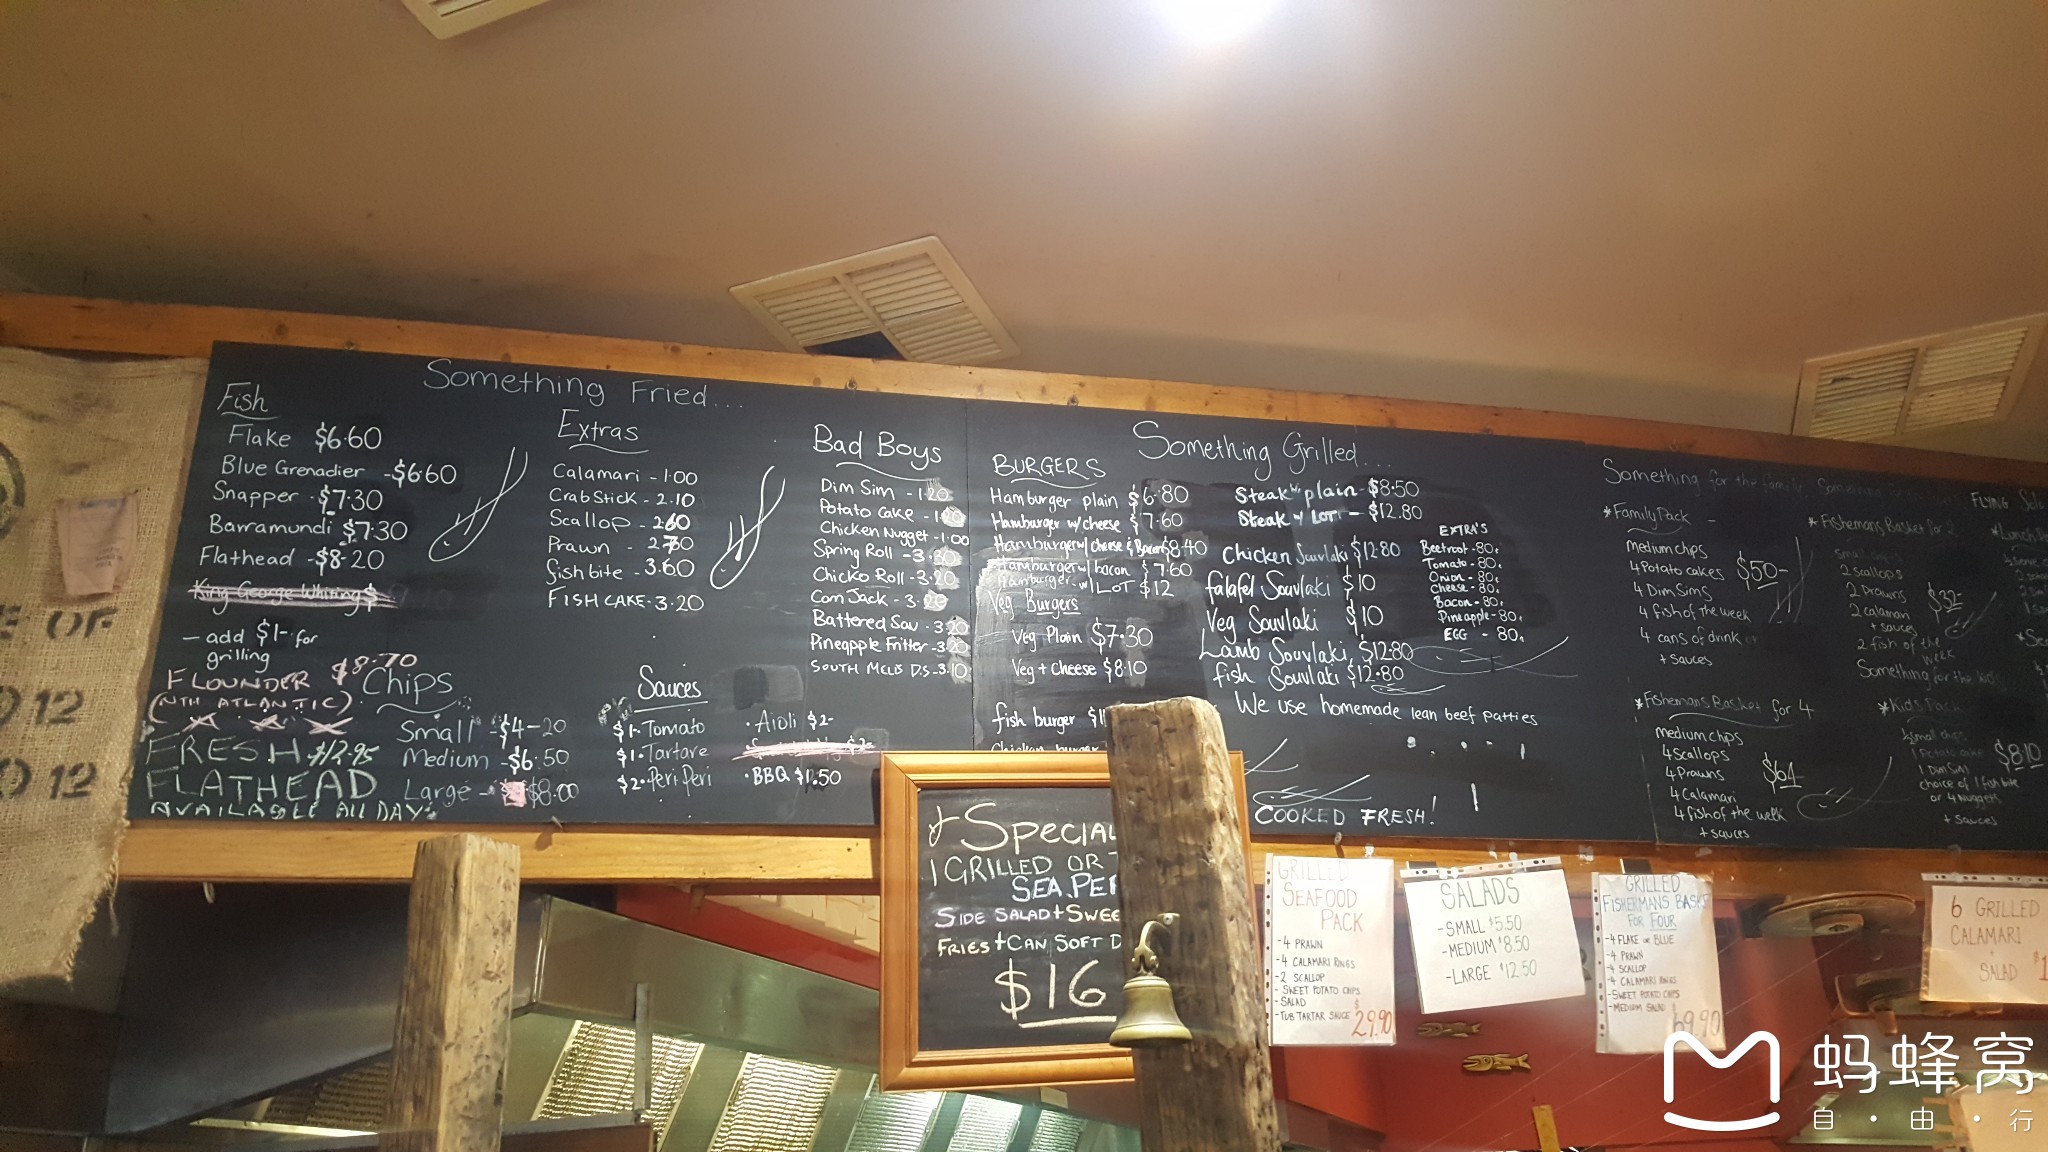 Something Fried...
Fish
Flake $6.60
Blue Grenadier - $6.60
Snapper - $7.30
Barramundi $7.30
Flathead - $8.20
King George Whiting $
- add $1- for
grilling
FLOUNDER $8.70
(NTH ATLANTIC)
FRESH $12.95
FLATHEAD
AVAILABLE ALL DAY
Chips
Small - $4-20
Medium - $6.50
Large - $8.00
Extras
Calamari - 1.00
Crab Stick - 2.10
Scallop - 2.60
Prawn - 2.70
fish bite - 3.60
FISH CAKE - 3.20
Sauces
$1. Tomato
$1. Tartare
$2. Peri Peri
. Aioli $2-
. BBQ $1.50
Bad Boys
Dim Sim - 1.20
Potato Cake -
Chicken Nugget - 1.00
Spring Roll - 3.20
Chicko Roll - 3.20
Corn Jack - 3.20
Battered Sav - 3.20
Pineapple Fritter - 3.20
SOUTH MELB D.S - 3.10
Something Grilled...
BURGERS
Hamburger plain $6.80
Hamburger w/ cheese $7.60
Hamburger w/ cheese & Bacon $8.40
Hamburger w/ bacon $7.60
Hamburger w/ LOT $12
Veg Burgers
Veg Plain $7.30
Veg + Cheese $8.10
fish burger $1
Chicken burger
Steak w plain - $8.50
Steak w LOT - $12.80
Chicken Souvlaki $12.80
falafel Souvlaki $10
Veg Souvlaki $10
Lamb Souvlaki $12.80
fish Souvlaki $12.80
We use homemade lean beef patties
COOKED FRESH!
EXTRA'S
Beetroot - 80c
Tomato - 80c
Onion - 80c
Cheese - 80c
Bacon - 80c
Pineapple - 80c
EGG - 80c
Something for the family
*Family Pack -
Medium chips
4 Potato cakes
4 Dim Sims
4 fish of the week
4 cans of drink
+ sauces
$50-
*Fishemans Basket for 4
medium chips
4 Scallops
4 Prawns
4 Calamari
4 fish of the week
+ sauces
$64
*Fishemans Basket for 2
Small chips
2 scallops
2 prawns
2 calamari
+ sauces
2 fish of the
week
$32-
Something for the kids
*Kid's Pack
Small chips
1 Potato cake
1 Dim Sim
choice of 1 fish bite
or 4 Nuggets
+ sauces
$8.10
FLYING
Special
1 GRILLED OR
SEA PER
SIDE SALAD + SWEE
FRIES + CAN SOFT D
$16
GRILLED
SEAFOOD
PACK
- 4 PRAWN
- 4 CALAMARI RINGS
- 2 SCALLOP
- SWEET POTATO CHIPS
- SALAD
- TUB TARTAR SAUCE $29.90
SALADS
- SMALL $5.50
- MEDIUM $8.50
- LARGE $12.50
GRILLED
FISHERMANS BASKE
FOR FOUR
- 4 FLAKE or BLUE
- 4 PRAWN
- 4 SCALLOP
- 4 CALAMARI RINGS
- SWEET POTATO CHIPS
- MEDIUM SALAD
69.90
6 GRILLED
CALAMARI
+
SALAD $1
蚂蜂窝
自·由·行